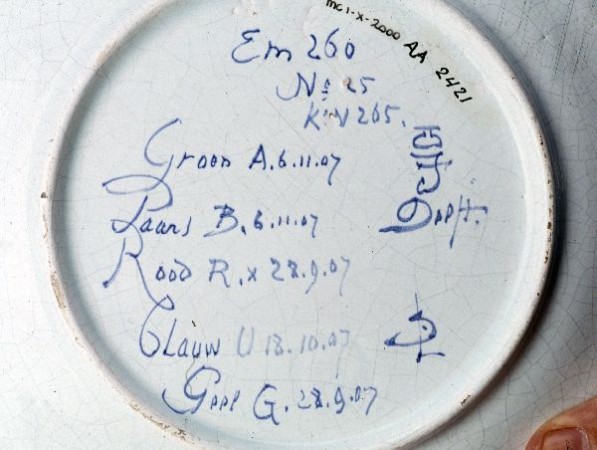 mc 1-x-2000 AA 2421
Em 260
No 25
K:N 265.
Groen A. 6.11.07
Paars B. 6.11.07
Delft.
Rood R. x 28.9.07
Blauw U 18.10.07
Geel G. 28.9.07